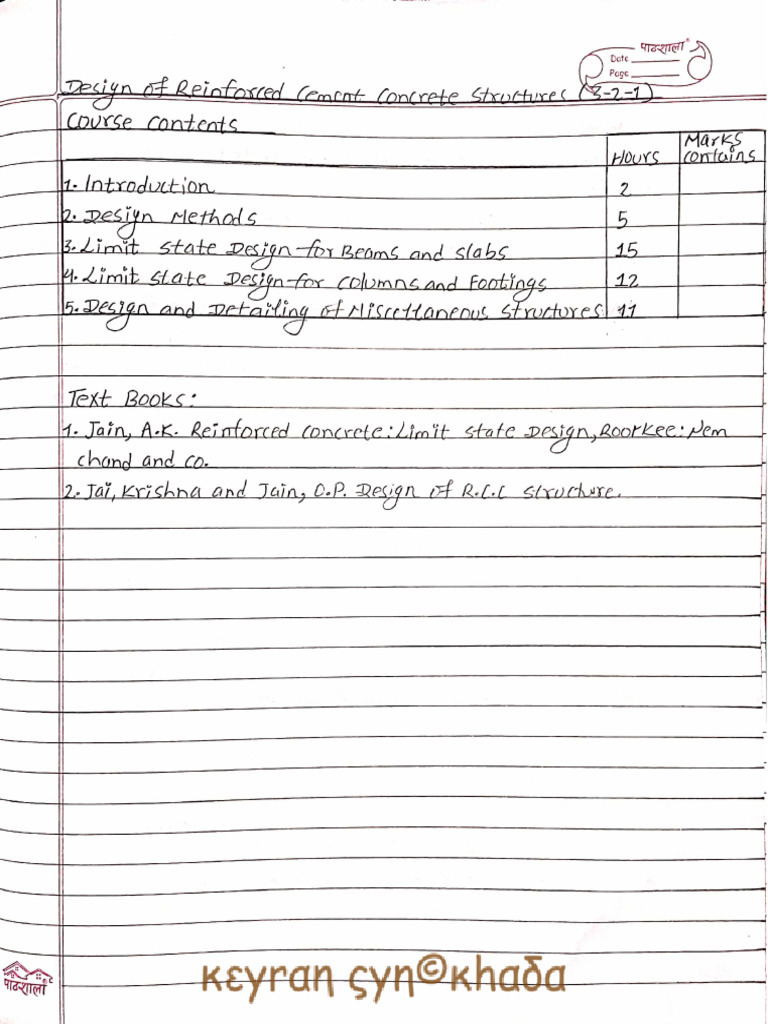 पाठशाला
Date
Page
Design of Reinforced Cement Concrete Structures (3-2-1)
Course contents
Hours
Marks contains
1. Introduction 2
2. Design Methods 5
3. Limit State Design for Beams and Slabs 15
4. Limit State Design for Columns and Footings 12
5. Design and Detailing of Miscellaneous Structures 11
Text Books:
1. Jain, A.K. Reinforced concrete: Limit state Design, Roorkee: Nem
chand and co.
2. Jai, Krishna and Jain, O.P. Design of R.C.C structure.
पाठशाला
κεyraη ςyη©κhaδa